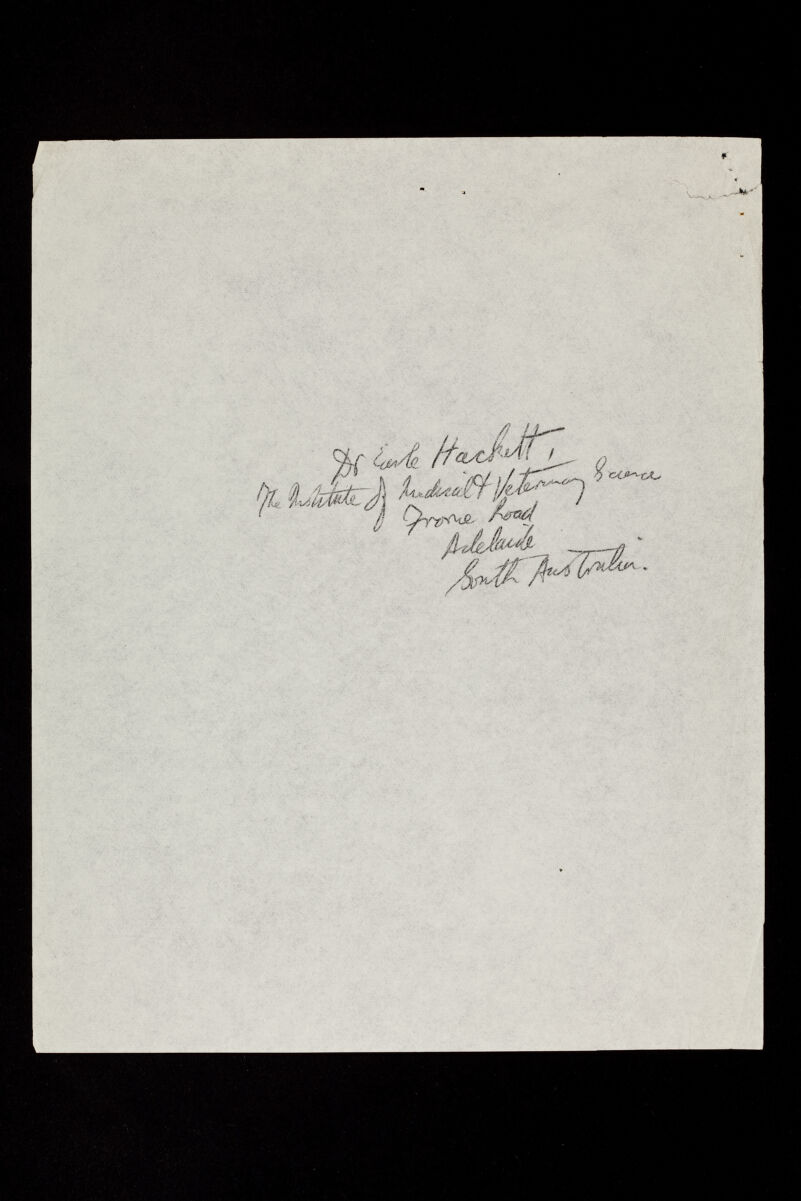 Dr Earle Hackett,
The Institute of Medical & Veterinary Science
Frome Road
Adelaide
South Australia.